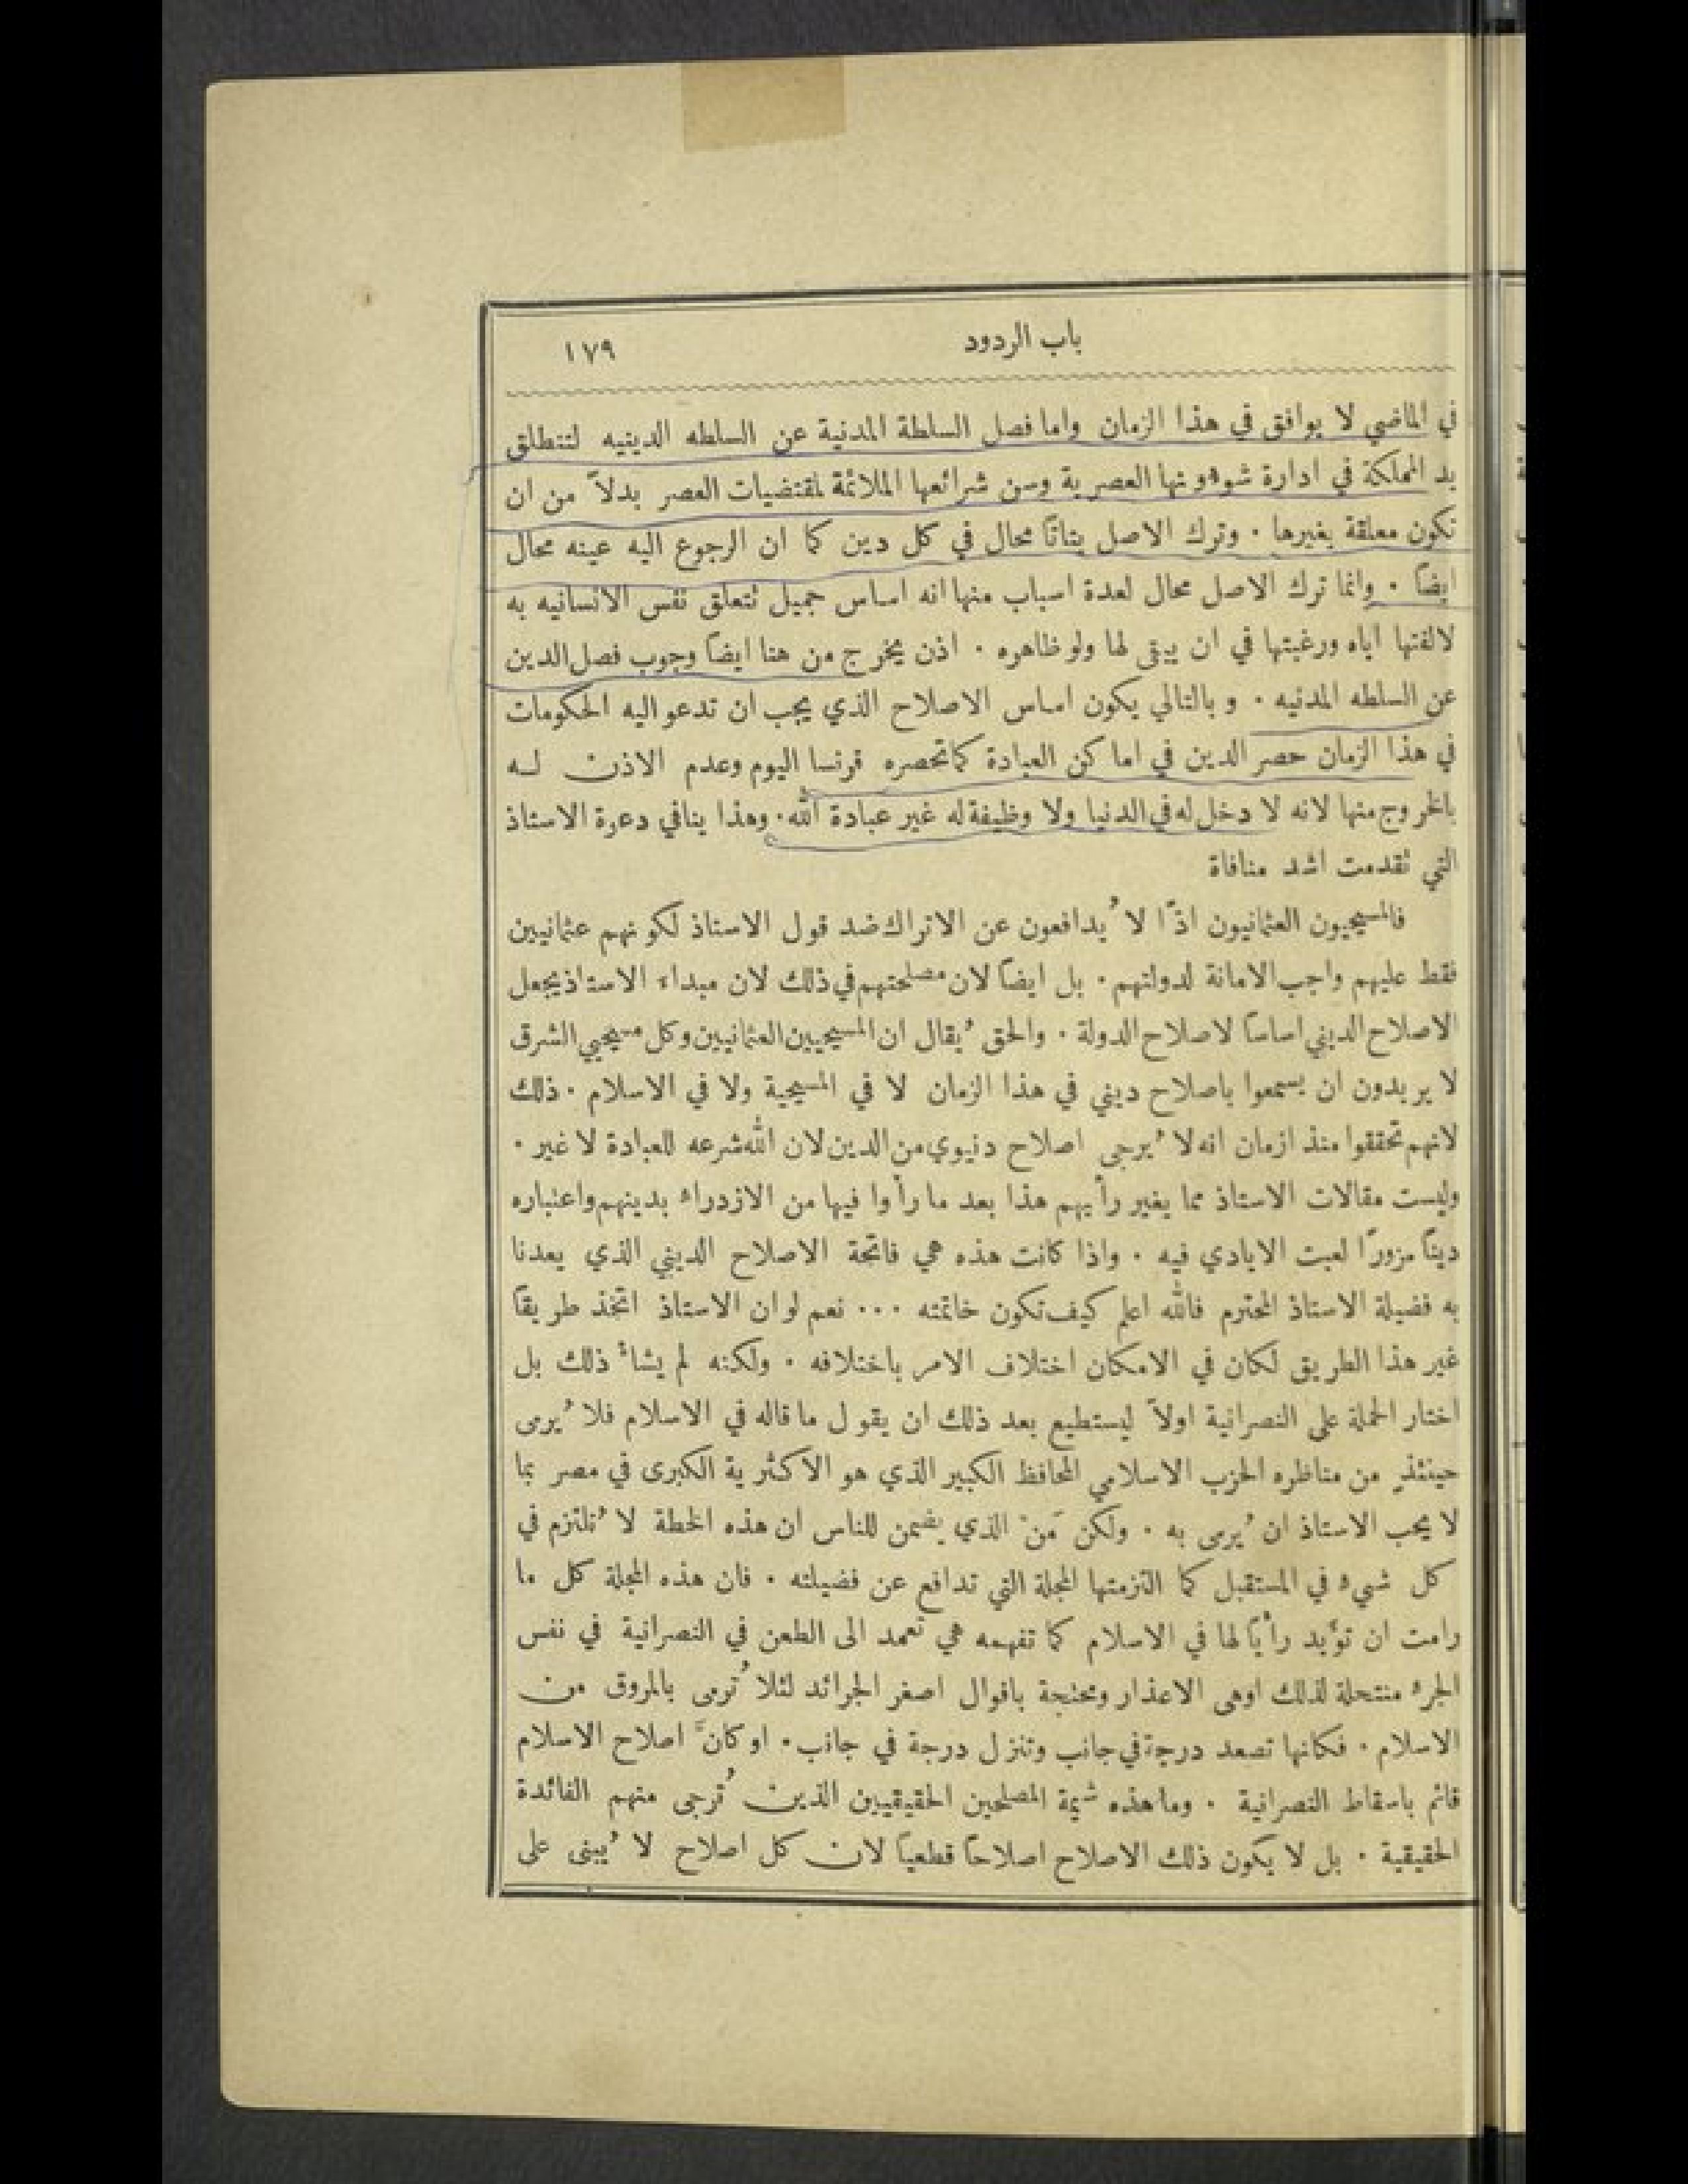 باب الردود ١٧٩
في الماضي لا يوافق في هذا الزمان واما فصل السلطة المدنية عن السلطه الدينيه لتنطلق
يد المملكة في ادارة شوءونها العصرية وسن شرائعها الملائمة لمقتضيات العصر بدلاً من ان
تكون معلقة بغيرها . وترك الاصل بتاتاً محال في كل دين كما ان الرجوع اليه عينه محال
ايضاً . وانما ترك الاصل محال لعدة اسباب منها انه اساس جميل تتعلق نفس الانسانيه به
لالفتها اياه ورغبتها في ان يبقى لها ولو ظاهره . اذن يخرج من هنا ايضاً وجوب فصل الدين
عن السلطه المدنيه . وبالتالي يكون اساس الاصلاح الذي يجب ان تدعو اليه الحكومات
في هذا الزمان حصر الدين في اماكن العبادة كما تحصره فرنسا اليوم وعدم الاذن له
بالخروج منها لانه لا دخل له في الدنيا ولا وظيفة له غير عبادة الله . وهذا ينافي دعوة الاستاذ
التي تقدمت اشد منافاة
فالمسيحيون العثمانيون اذًا لا يُدافعون عن الاتراك ضد قول الاستاذ لكونهم عثمانيين
فقط عليهم واجب الامانة لدولتهم . بل ايضاً لان مصلحتهم في ذلك لان مبداء الاستاذ يجعل
الاصلاح الديني اساساً لاصلاح الدولة . والحق يُقال ان المسيحيين العثمانيين وكل مسيحيي الشرق
لا يريدون ان يسمعوا باصلاح ديني في هذا الزمان لا في المسيحية ولا في الاسلام . ذلك
لانهم تحققوا منذ ازمان انه لا يُرجى اصلاح دنيوي من الدين لان الله شرعه للعبادة لا غير .
وليست مقالات الاستاذ مما يغير رأيهم هذا بعد ما رأوا فيها من الازدراء بدينهم واعتباره
ديناً مزوراً لعبت الايادي فيه . واذا كانت هذه هي فاتحة الاصلاح الديني الذي يعدنا
به فضيلة الاستاذ المحترم فالله اعلم كيف تكون خاتمته ... نعم لو ان الاستاذ اتخذ طريقاً
غير هذا الطريق لكان في الامكان اختلاف الامر باختلافه . ولكنه لم يشأ ذلك بل
اختار الحملة على النصرانية اولاً ليستطيع بعد ذلك ان يقول ما قاله في الاسلام فلا يُرمى
حينئذٍ من مناظره الحزب الاسلامي المحافظ الكبير الذي هو الاكثرية الكبرى في مصر بما
لا يحب الاستاذ ان يُرمى به . ولكن مَنْ الذي يضمن للناس ان هذه الخطة لا تُلتزم في
كل شيء في المستقبل كما التزمتها المجلة التي تدافع عن فضيلته . فان هذه المجلة كل ما
رامت ان تؤيد رأياً لها في الاسلام كما تفهمه هي تعمد الى الطعن في النصرانية في نفس
الجزء منتحلة لذلك اوهى الاعذار ومحتجة باقوال اصغر الجرائد لئلا تُرمى بالمروق من
الاسلام . فكانها تصعد درجة في جانب وتنزل درجة في جانب . او كأنَّ اصلاح الاسلام
قائم باسقاط النصرانية . وما هذه شيمة المصلحين الحقيقيين الذين تُرجى منهم الفائدة
الحقيقية . بل لا يكون ذلك الاصلاح اصلاحاً قطعياً لان كل اصلاح لا يُبنى على